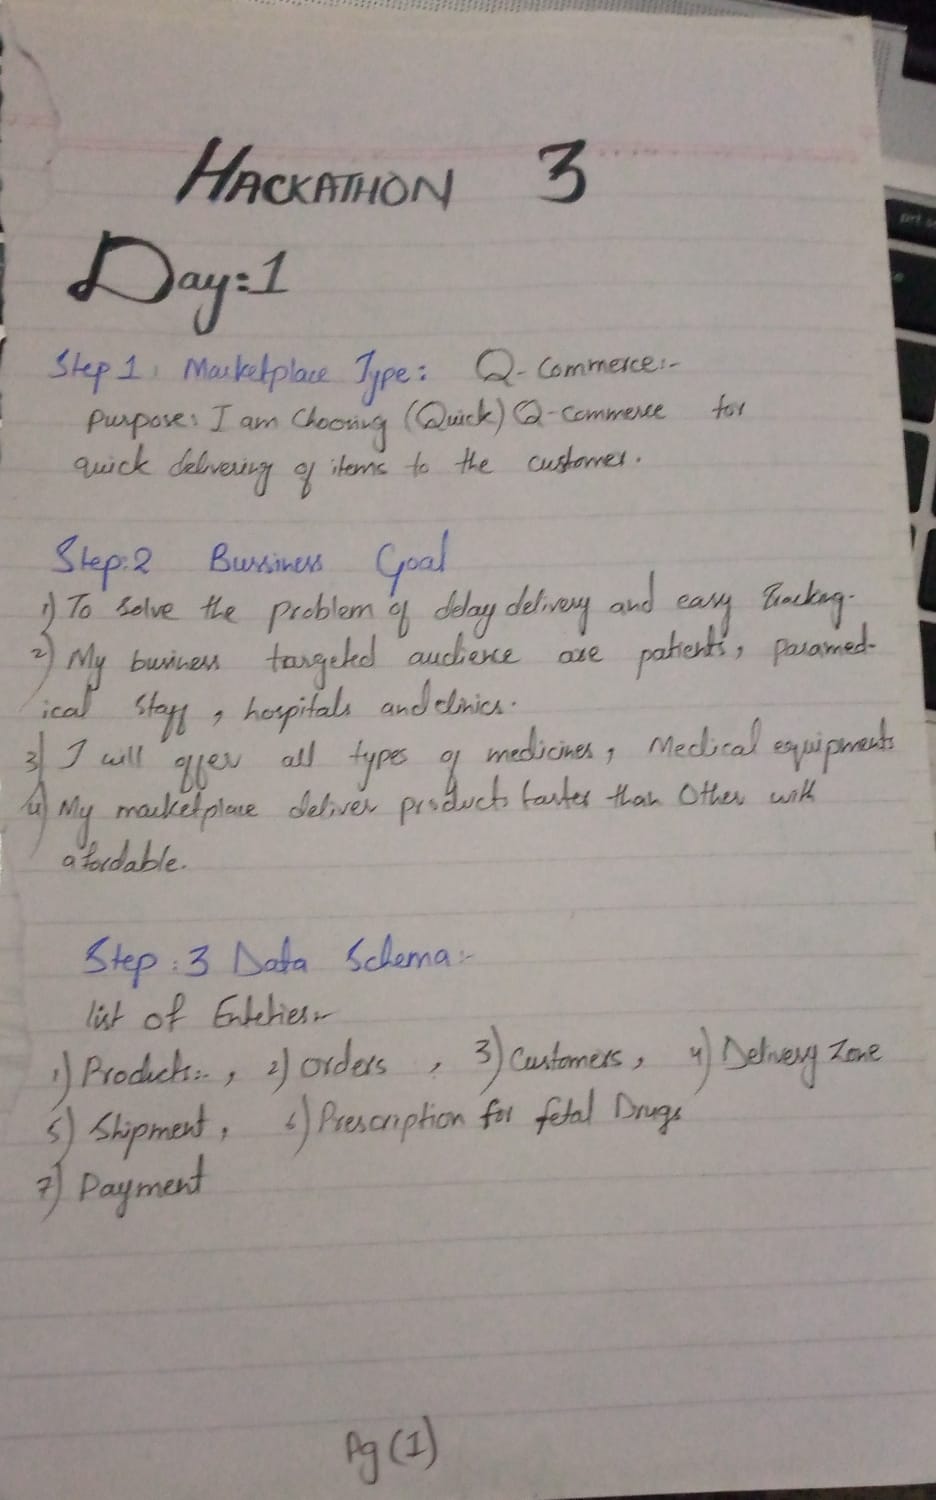 HACKATHON 3
Day:1
Step 1: Marketplace Type: Q-Commerce:-
Purpose: I am Choosing (Quick) Q-commerce for
quick delivering of items to the customer.
Step:2 Bussiness Goal
1) To Solve the problem of delay delivery and easy Tracking.
2) My business targeted audience are patients, paramed-
ical staff, hospitals and clinics.
3) I will offer all types of medicines, Medical equipments
4) My marketplace deliver products faster than Other with
afordable.
Step:3 Data Schema:-
list of Enteties:-
1) Products:-, 2) Orders, 3) Customers, 4) Delivery Zone
5) Shipment, 6) Prescription for fetal Drugs
7) Payment
Pg (1)